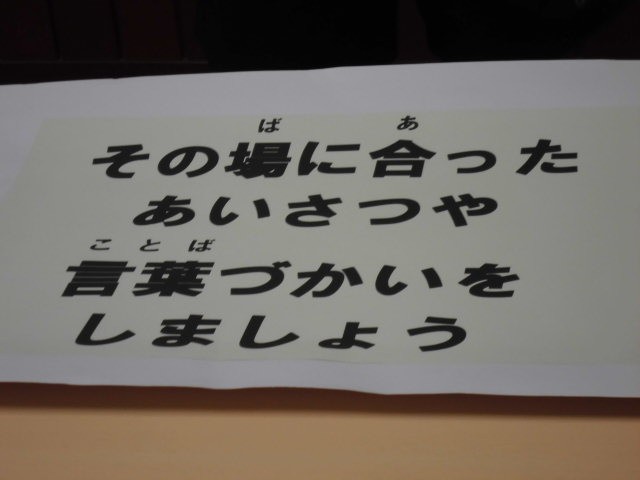 ば あ
その場に合った
あいさつや
ことば
言葉づかいを
しましょう